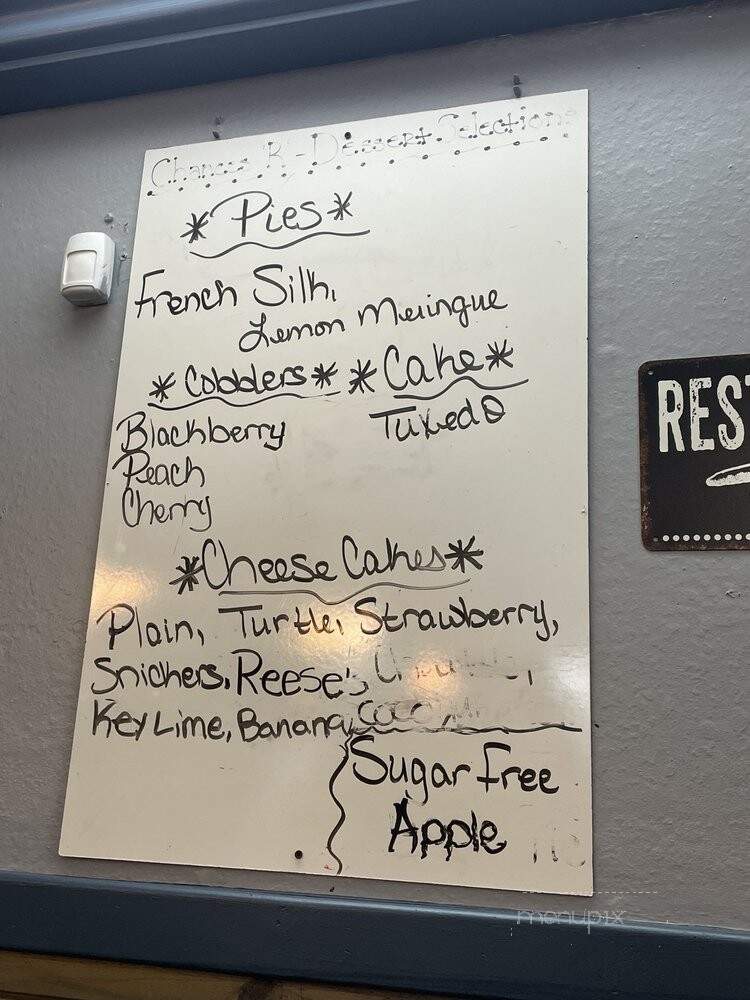 Chances "R" - Dessert Selections
*Pies*
French Silk,
Lemon Meringue
*Cobblers* *Cake*
Blackberry Tuxedo
Peach
Cherry
*Cheese Cakes*
Plain, Turtle, Strawberry,
Snickers, Reese's
Key Lime, Banana,
Sugar Free
Apple
REST
menupix